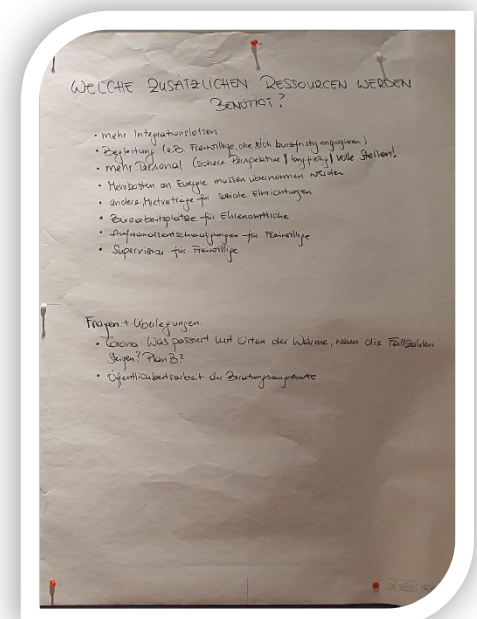 WELCHE ZUSÄTZLICHEN RESSOURCEN WERDEN
BENÖTIGT?
• mehr Integrationslotsen
• Begleitung (z.B. Freiwillige, die sich kurzfristig engagieren)
• mehr Personal (sichere Perspektive / langfristig / volle Stellen!
• Mehrkosten an Energie müssen übernommen werden
• andere Mietverträge für soziale Einrichtungen
• Büroarbeitsplätze für Ehrenamtliche
• Aufwandsentschädigungen für Freiwillige
• Supervision für Freiwillige
Fragen + Überlegungen:
• Corona: Was passiert mit Orten der Wärme, wenn die Fallzahlen
steigen? Plan B?
• Öffentlichkeitsarbeit der Beratungsangebote